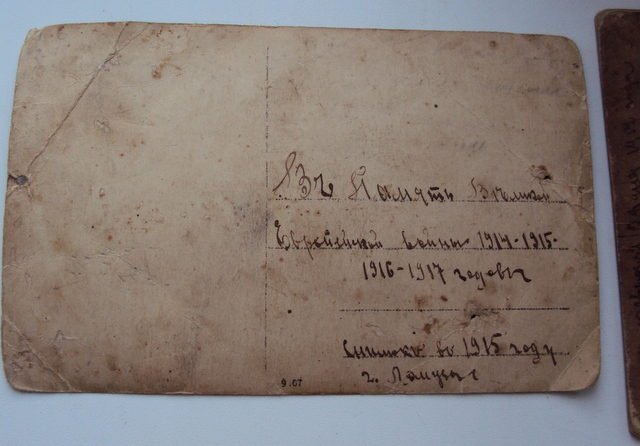 Въ Память Великой
Европейской войны 1914-1915-
1916-1917 годовъ
снимокъ во 1915 году
г.
9.07